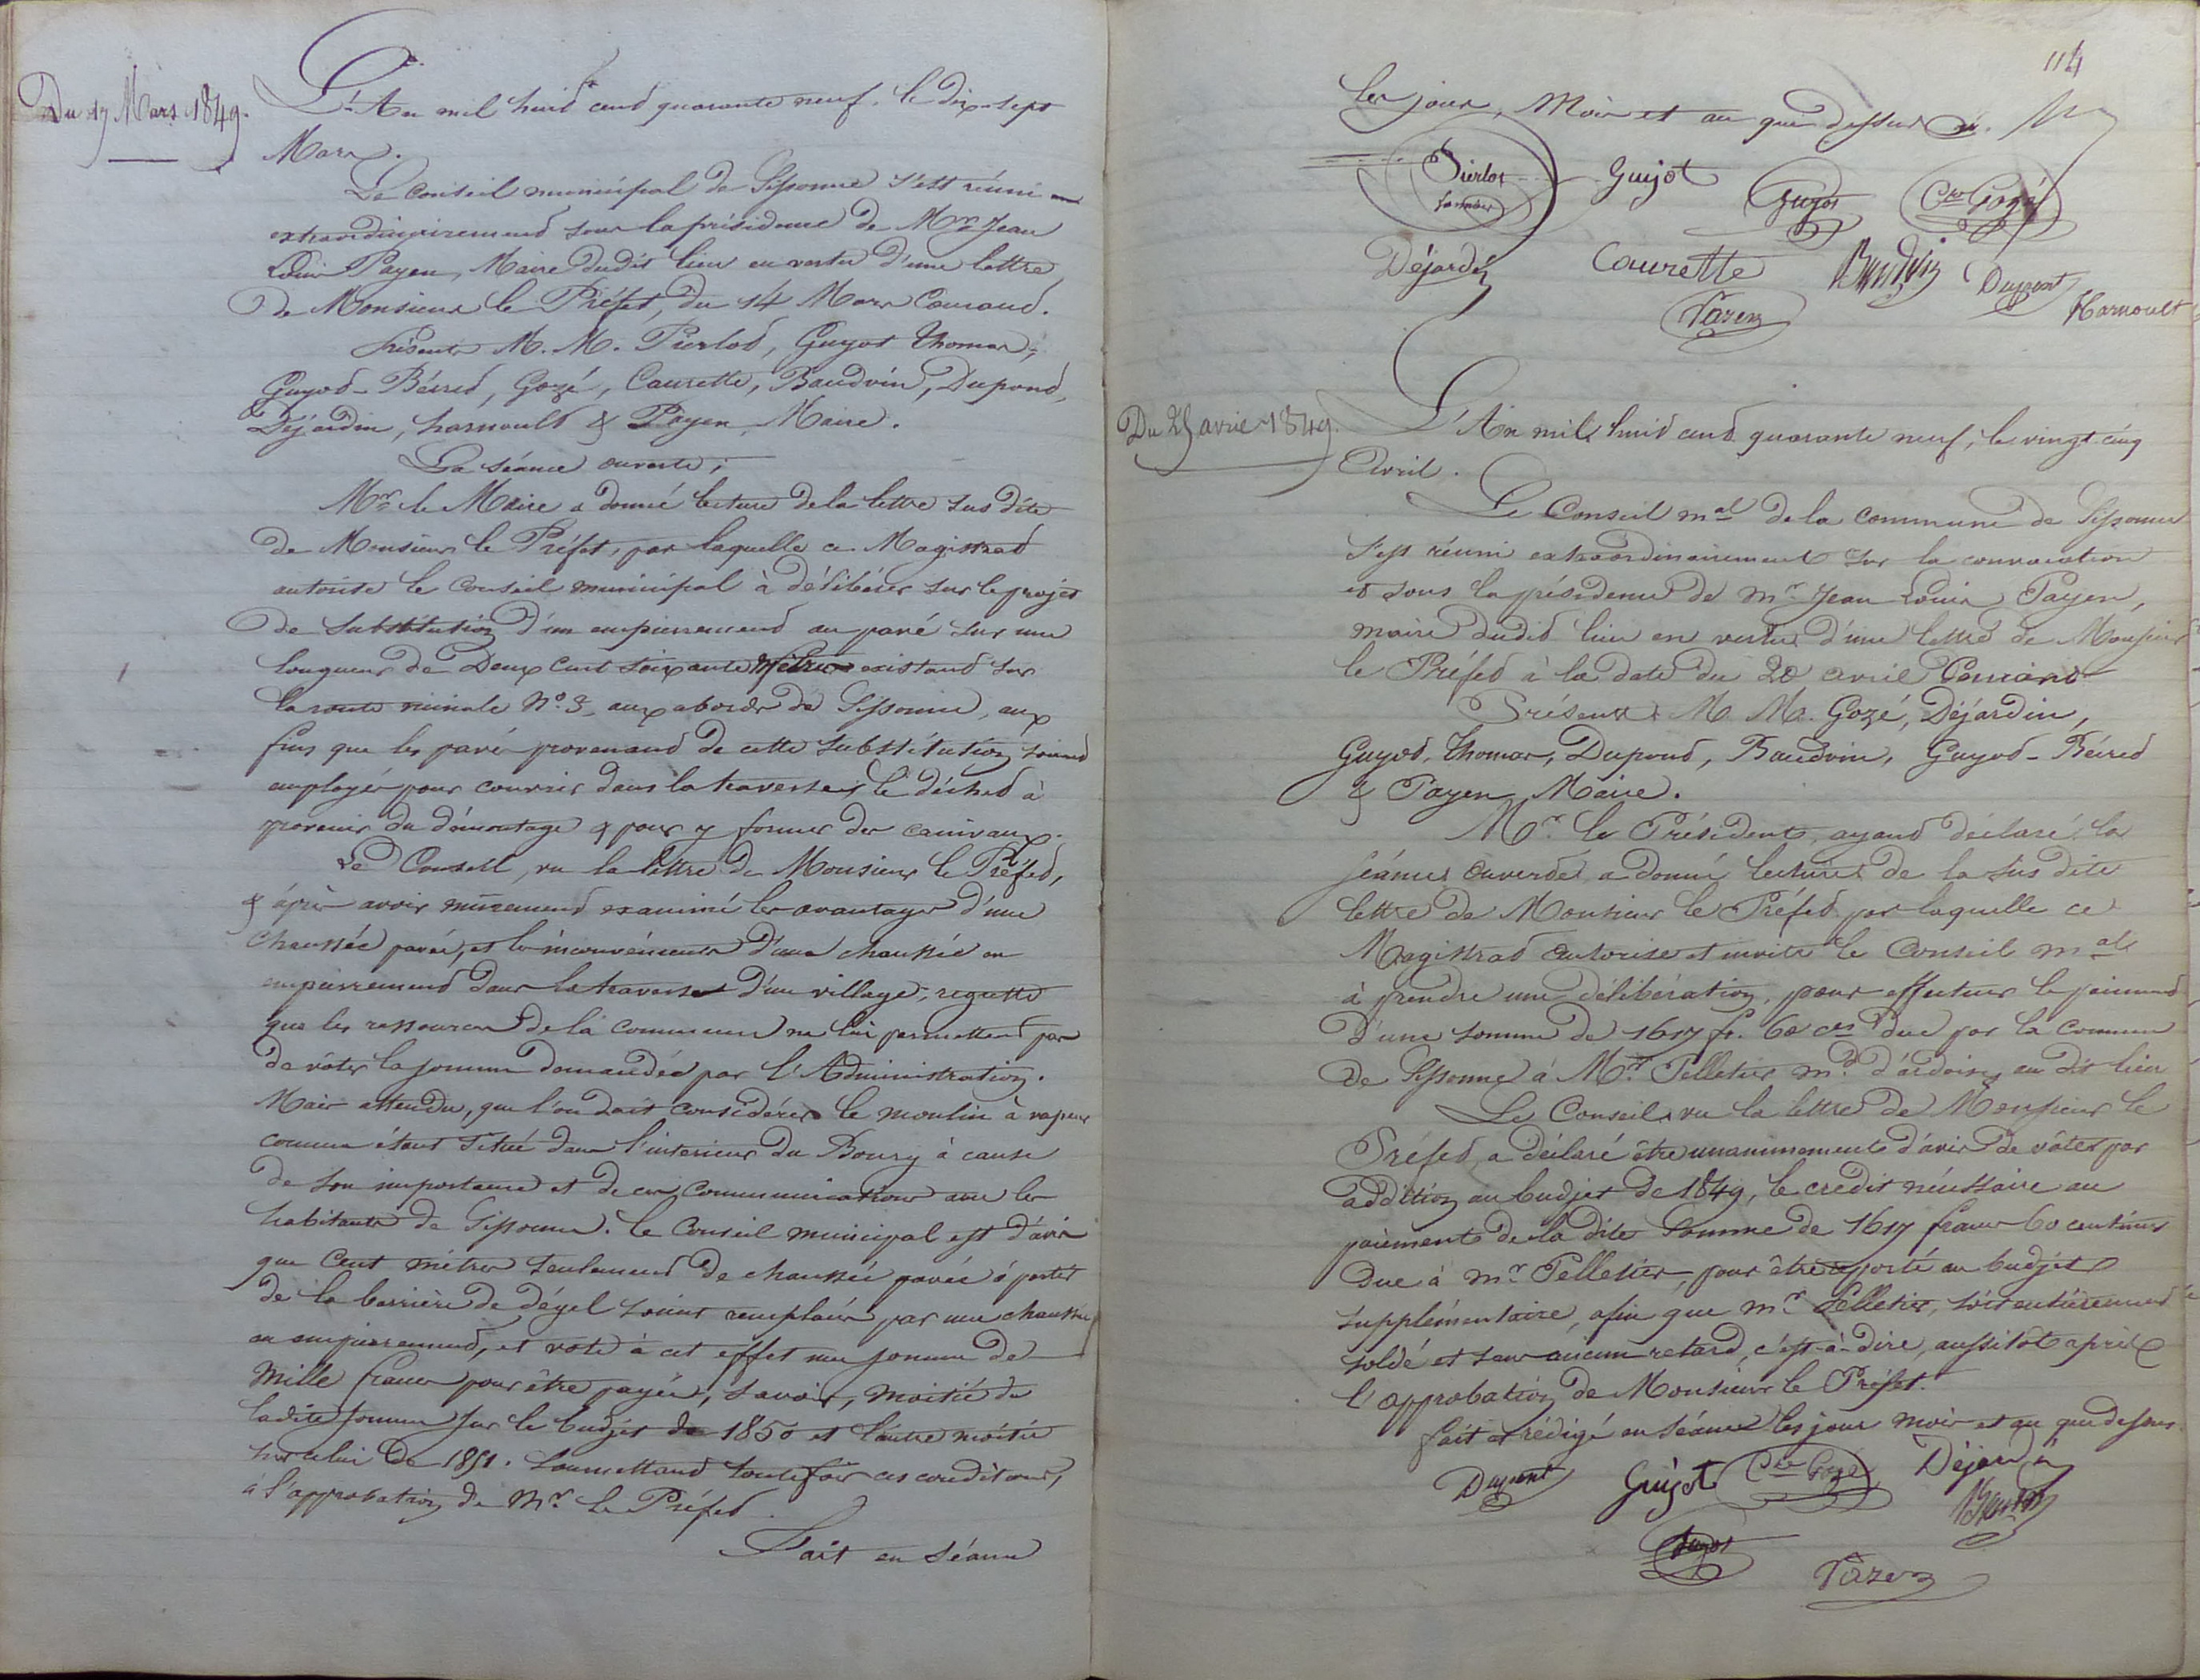 Du 17 Mars 1849.
L'An mil huit cent quarante neuf, le dix-sept
Mars.
Le Conseil municipal de Sissonne s'est réuni
extraordinairement sous la présidence de Mr. Jean
Louis Payen, Maire dudit lieu en vertu d'une lettre
de Monsieur le Préfet, du 14 Mars Courant.
Présents M. M. Pierlot, Guyot Thomas,
Guyot-Bésred, Gozé, Caurette, Baudvin, Dupont,
Déjardin, harnoult & Payen, Maire.
La séance ouverte;
Mr. le Maire a donné lecture de la lettre sus dite
de Monsieur le Préfet, par laquelle ce Magistrat
autorise le Conseil municipal à délibérer sur le projet
de substitution d'un empierrement au pavé sur une
longueur de Deux Cent soixante Mètres existant sur
la route vicinale N.º 3, aux abords de Sissonne, aux
fins que les pavés provenant de cette substitution soient
employés pour couvrir dans la traverse le déchet à
provenir du démontage & pour y former des caniveaux.
Le Conseil, vu la lettre de Monsieur le Préfet,
& après avoir mûrement examiné les avantages d'une
chaussée pavée, et les inconvénients d'une chaussée en
empierrement dans la traverse d'un village, regrette
que les ressources de la commune ne lui permettent pas
de vôter la somme demandée par l'Administration.
Mais attendu, que l'on doit considérer le moulin à vapeur
comme étant situé dans l'intérieur du Bourg à cause
de son importance et de ces communications avec les
habitants de Sissonne. le Conseil municipal est d'avis
que Cent mètres seulement de chaussée pavée à partir
de la barrière de dégel soient remplacés par une chaussée
en empierrement, et vote à cet effet une somme de
Mille francs pour être payée, savoir, moitié de
ladite somme sur le budjet de 1850 et l'autre moitié
sur celui de 1851. Soumettant toutefois ces conditions,
à l'approbation de Mr. le Préfet.
Fait en séance
114
les jour, Mois et an que dessus
Pierlot Guyot Guyot Gozé
Déjardin Caurette Baudvin Dupont Harnoult
Payen
Du 25 avril 1849.
L'An mil huit cent quarante neuf, le vingt cinq
Avril.
Le Conseil mal de la commune de Sissonne
s'est réuni extraordinairement sur la convocation
et sous la présidence de Mr. Jean Louis Payen,
maire dudit lieu en vertu d'une lettre de Monsieur
le Préfet à la date du 20 avril Courant
Présents M. M. Gozé, Déjardin,
Guyot, Thomas, Dupont, Baudvin, Guyot-Bésred
& Payen, Maire.
Mr. le Président, ayant déclaré la
séance ouverte, a donné lecture de la sus dite
lettre de Monsieur le Préfet par laquelle ce
Magistrat autorise et invite le Conseil mal
à prendre une délibération, pour effectuer le paiement
d'une somme de 1617 fr. 60 ces due par la Commune
de Sissonne à Mr. Pelletier md. d'ardoises au dit lieu
Le Conseil, vu la lettre de Monsieur le
Préfet, a déclaré être unanimement d'avis de vôter par
addition au budjet de 1849, le crédit nécessaire au
paiement de la dite somme de 1617 francs 60 centimes
due à mr Pelletier, pour être reporté au budjet
supplémentaire, afin que mr Pelletier, soit entièrement
soldé et sans aucun retard, c'est-à-dire, aussitôt après
l'approbation de Monsieur le Préfet.
fait et rédigé en séance les jour mois et an que dessus.
Dupont Guyot Gozé Déjardin
Baudvin
Guyot
Payen